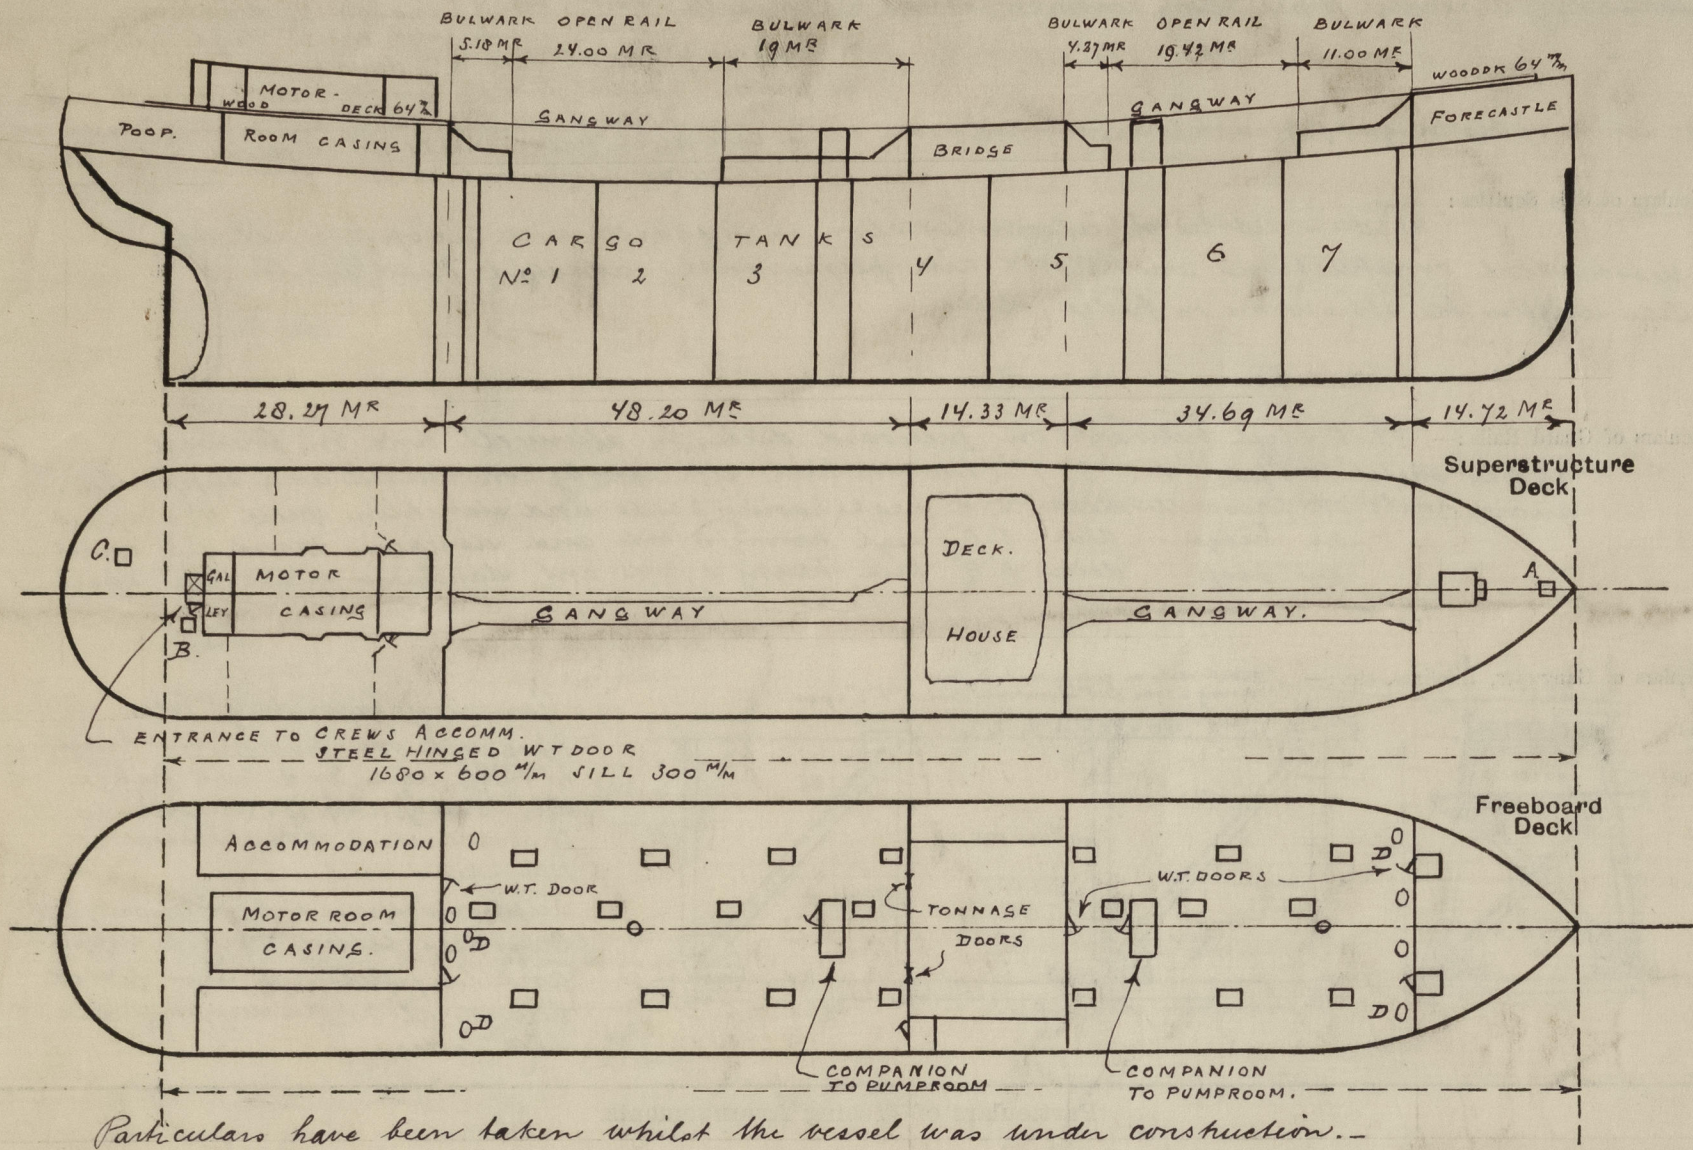 BULWARK OPEN RAIL BULWARK BULWARK OPEN RAIL BULWARK
5.18 MR 24.00 MR 19 MR 4.37 MR 19.42 MR 11.00 MR
WOOD DK 64 m/m
MOTOR-
WOOD DECK 64 m/m
GANGWAY GANGWAY
POOP. ROOM CASING BRIDGE FORECASTLE
CARGO TANKS
No 1 2 3 4 5 6 7
28.27 MR 48.20 MR 14.33 MR 34.69 MR 14.72 MR
Superstructure
Deck
C. GAL MOTOR DECK. A
LEY CASING GANGWAY HOUSE GANGWAY.
B.
ENTRANCE TO CREWS ACCOMM.
STEEL HINGED WT DOOR
1680 x 600 M/m SILL 300 M/M
Freeboard
Deck
ACCOMMODATION D
W.T. DOOR W.T. DOORS
MOTOR ROOM TONNAGE
CASING. D DOORS
D D
COMPANION COMPANION
TO PUMPROOM TO PUMPROOM.
Particulars have been taken whilst the vessel was under construction.-